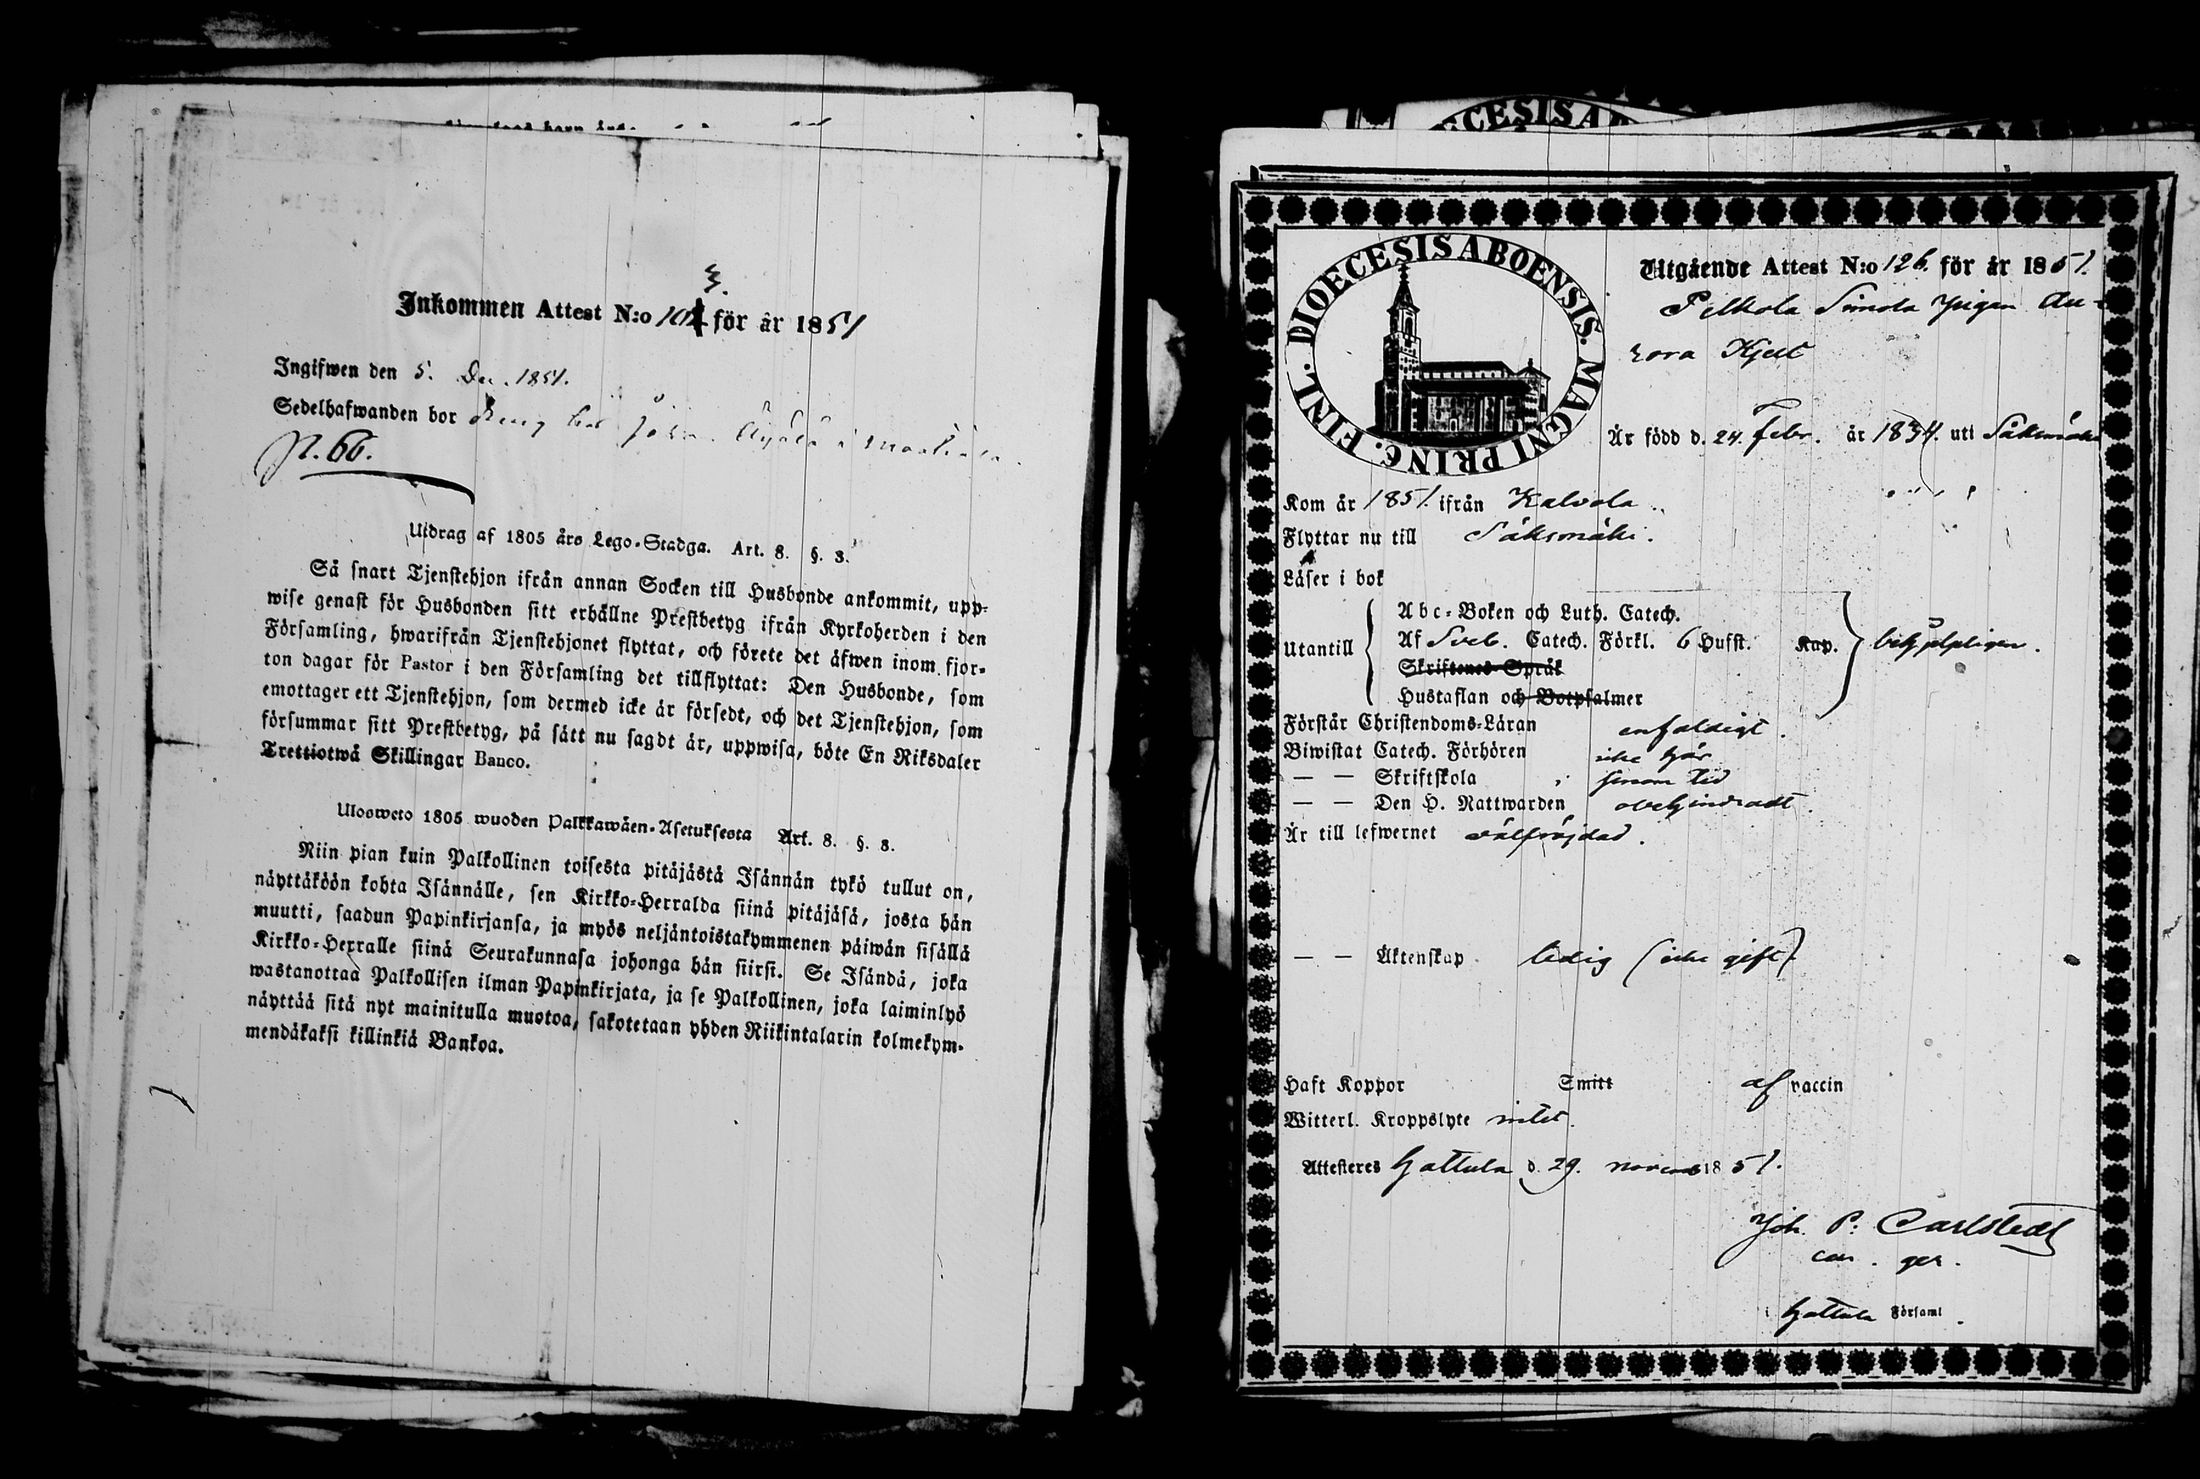 Inkommen Attest N:o 103. för år 1851
Ingifwen den 5. Dec. 1851.
Sedelhafwanden bor
N. 66.
Utdrag af 1805 års Lego-Stadga. Art. 8. §. 3.
Så snart Tjenstehjon ifrån annan Socken till Husbonde ankommit, upp-
wise genast för Husbonden sitt erhållne Prestbetyg ifrån Kyrkoherden i den
Församling, hwarifrån Tjenstehjonet flyttat, och förete det äfwen inom fjor-
ton dagar för Pastor i den Församling det tillflyttat: Den Husbonde, som
emottager ett Tjenstehjon, som dermed icke är försedt, och det Tjenstehjon, som
försummar sitt Prestbetyg, på sätt nu sagdt är, uppwisa, böte En Riksdaler
Trettiotwå Skillingar Banco.
Uloswcto 1805 wuoden Palkkawäen-Asetuksesta Art. 8. §. 3.
Niin pian kuin Palkollinen toisesta pitäjästä Isännän tykö tullut on,
näyttäköön kohta Isännälle, sen Kirkko-Herralda siinä pitäjäsä, josta hän
muutti, saadun Papinkirjansa, ja myös neljäntoistakymmenen päiwän sisällä
Kirkko-Herralle siinä Seurakunnasa johonga hän siirsi. Se Isändä, joka
wastanottaa Palkollisen ilman Papinkirjata, ja se Palkollinen, joka laiminlyö
näyttää sitä nyt mainitulla muotoa, sakotetaan yhden Riikintalarin kolmekym-
mendäkaksi killinkiä Bankoa.
DIOECESIS ABOENSIS. MAGNI PRINC. FINL.
Utgående Attest N:o 126. för år 1851.
Pelkola Simola pigan
Är född d. 24. Febr. år 1834. uti Sääksmäki
Kom år 1851. ifrån Kalvola.
Flyttar nu till Sääksmäki.
Läser i bok
Utantill
Abc-Boken och Luth. Catech.
Af Sveb. Catech. Förkl. 6 Hufst. Kap. behjelpligen.
Skriftenes Språk
Hustaflan och Botpsalmer
Förstår Christendoms-Läran enfaldigt.
Biwistat Catech. Förhören icke här
— — Skriftskola
— — Den H. Nattwarden obehindradt.
Är till lefwernet välfrejdad.
— — Äktenskap ledig (icke gift)
Haft Koppor Smitt af vaccin
Witterl. Kroppslyte intet.
Attesteres Hattula d. 29. novemb 1851.
Joh. P. Carlstedt
i Hattula Församl.